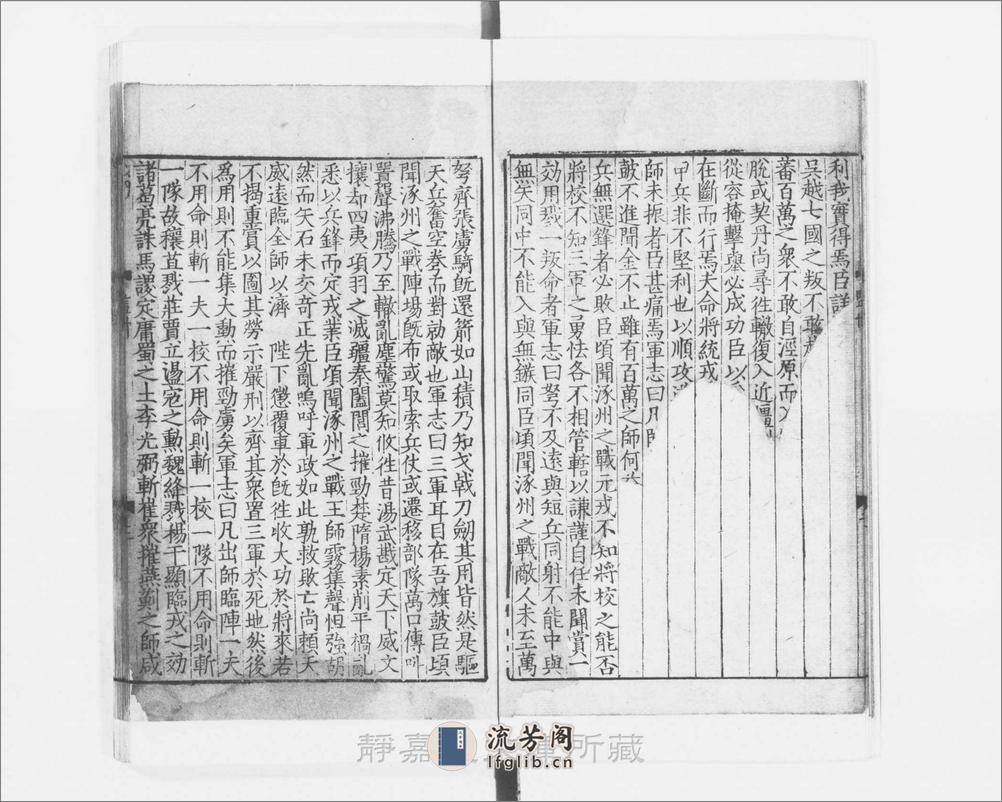 利我實得焉臣詳
吳越七國之叛不敢
蕃百萬之衆不敢自涇原而入
脫或契丹尚尋徃轍復入近疆
從容掩擊舉必成功臣以
在斷而行焉夫命將統戎
甲兵非不堅利也以順攻
師未振者臣甚痛焉軍志曰凡
皷不進聞金不止雖有百萬之師何
兵無選鋒者必敗臣頃聞涿州之戰元戎不知將校之能否
將校不知三軍之勇怯各不相管轄以謙謹自任未聞賞一
効用戮一叛命者軍志曰弩不及遠與短兵同射不能中與
無矢同中不能入與無鏃同臣頃聞涿州之戰敵人未至萬
弩齊張虜騎旣還箭如山積乃知戈戟刀劒其用皆然是驅
天兵奮空拳而對勍敵也軍志曰三軍耳目在吾旗皷臣頃
聞涿州之戰陣場旣布或取索兵仗或遷移部隊萬口傳叫
囂聲沸騰乃至轍亂塵驚莫知攸徃昔湯武戡定天下威文
攘却四夷項羽之滅彊秦闔閭之摧勁楚隋楊素削平禍亂
悉以兵鋒而定戎業臣頃聞涿州之戰王師霧集聲怛強胡
然而矢石未交奇正先亂嗚呼軍政如此孰救敗亡尚賴天
威遠臨全師以濟 陛下懲覆車於旣徃收大功於將來若
不揭重賞以圖其勞示嚴刑以齊其衆置三軍於死地然後
爲用則不能集大勳而摧勁虜矣軍志曰凡出師臨陣一夫
不用命則斬一夫一校不用命則斬一校一隊不用命則斬
一隊故穰苴戮莊賈立盪宼之勳魏絳戮楊干顯臨戎之効
諸葛亮誅馬謖定庸蜀之土李光弼斬崔衆摧燕薊之師咸
靜嘉 所藏
流芳阁
lfglib.cn